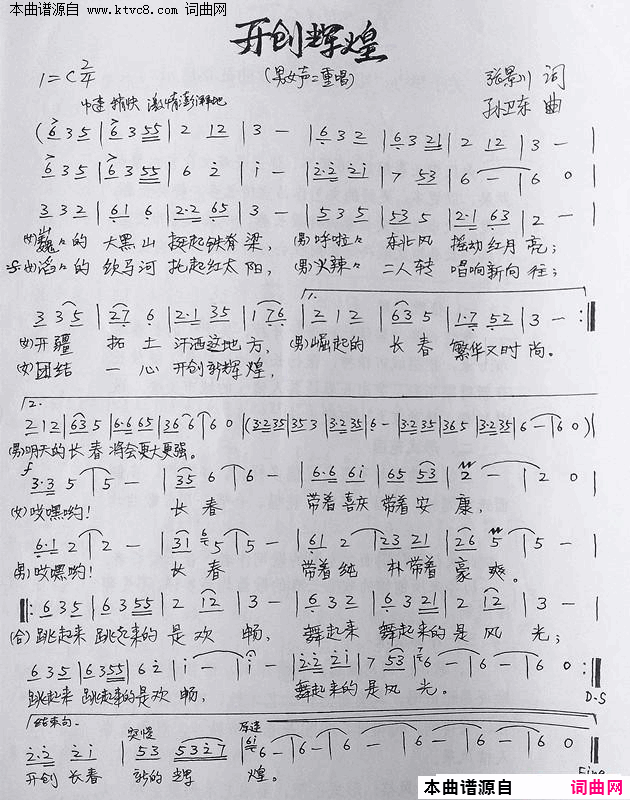 本曲谱源自 www.ktvc8.com 词曲网
开创辉煌
1=C 2/4
(男女声二重唱)
张景川 词
中速 稍快 激情澎湃地
孙卫东 曲
(6 3 5 | 6 3 55 | 2 12 | 3 – | 6 3 2 | 6 3 21 | 2 12 | 3 – |
6 3 5 | 6 3 55 | 6 2 | i – | 2·2 21 | 7 53 | 6 – | 6 0 |
3 3 2 | 61 6 | 2·2 65 | 3 – | 5 3 5 | 53 5 | 2·1 63 | 2 – |
(女)巍々的 大黑山 挺起铁脊梁, (男)呼啦々 东北风 摇动红月亮;
(女)滔々的 饮马河 托起红太阳, (男)火辣々 二人转 唱响新向往;
1.
3 35 | 27 6 | 2·1 35 | 1 76 | 2 12 | 635 | 1·7 52 | 3 – :‖
(女)开疆 拓土 汗洒这地方, (男)崛起的 长春 繁华又时尚。
(女)团结 一心 开创新辉煌,
2.
212 | 635 | 6·6 65 | 36 6 | 6 0 | (3·235 | 353 | 3·235 | 6 – | 3·235 | 365 | 3·235 | 6 – | 6 0) |
(男)明天的长春 将会更大更强。
f
3·3 5 | 5 – | 35 6 | 6 – | 6·6 61 | 65 53 | 2 – | 2 0 |
(女)哎嘿哟! 长春 带着喜庆 带着安康,
6·1 2 | 2 – | 31 5 | 5 – | 61 2 | 23 21 | 26 5 | 5 – |
(男)哎嘿哟! 长春 带着纯朴 带着豪爽。
‖: 6 3 5 | 6 3 55 | 2 12 | 3 – | 6 3 2 | 6 3 21 | 2 12 | 3 – |
(合)跳起来 跳起来的是欢畅, 舞起来 舞起来的是风光;
6 3 5 | 6 3 55 | 6 2 | i – | i – | 2·2 21 | 7 53 | 6 – | 6 – | 6 0 :‖
跳起来 跳起来的是欢畅, 舞起来的是风光。
D·S
结束句. 突慢 原速
2·2 2i | 53 5327 | 6 – | 6 – | 6 – | 6 – | 6 0 ‖
开创 长春 新的辉煌。
Fine
本曲谱源自 词曲网
www.ktvc8.com